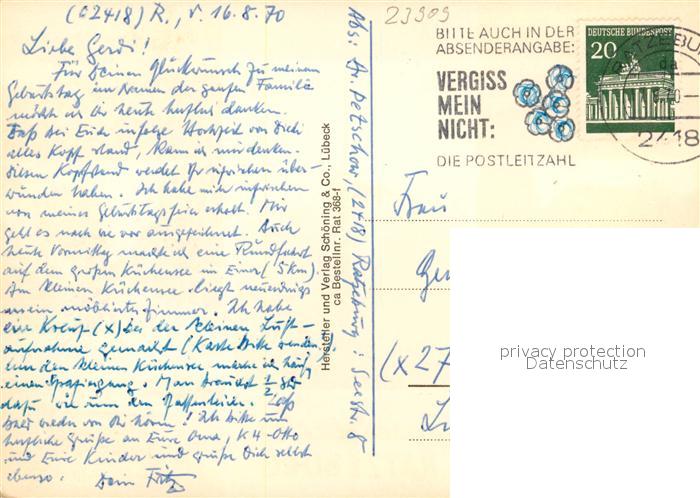 (2418) R., d. 16.8.70
Liebe Gerdi!
Für Deinen Glückwunsch zu meinem
Geburtstag im Namen der ganzen Familie
möchte ich Dir heute herzlich danken.
Daß bei Euch infolge Hochzeit von
alles Kopf stand, kann ich mir denken.
Diesen Kopfstand werdet Ihr inzwischen über-
wunden haben. Ich habe mich inzwischen
von meiner Geburtstagsfeier erholt. Mir
geht es nach wie vor ausgezeichnet. Auch
heute Vormittag machte ich eine Rundfahrt
auf dem großen Küchensee im Einer (5 km).
Am kleinen Küchensee liegt neuerdings
unser möbliertes Zimmer. Ich habe
ein Kreuz (x) bei der kleinen Luft-
aufnahme gemacht (Karte bitte wenden).
Um den kleinen Küchensee mache ich häufig
einen Spaziergang. Man braucht 1/2 Std
dafür wie um den
bald wieder von Dir hören! Ich bitte um
herzliche Grüße an Eure Oma, K H-Otto
und Eure Kinder und grüße Dich selbst
ebenso. Dein Fritz
Abs: Dr. Petschow, (2418) Ratzeburg, Seestr. 8
Hersteller und Verlag Schöning & Co., Lübeck
ca Bestellnr. Rat 368-f
23909
BITTE AUCH IN DER
ABSENDERANGABE:
VERGISS
MEIN
NICHT:
DIE POSTLEITZAHL
DEUTSCHE BUNDESPOST
20
RATZEBURG
2418
Frau
Ge
(x27
privacy protection
Datenschutz